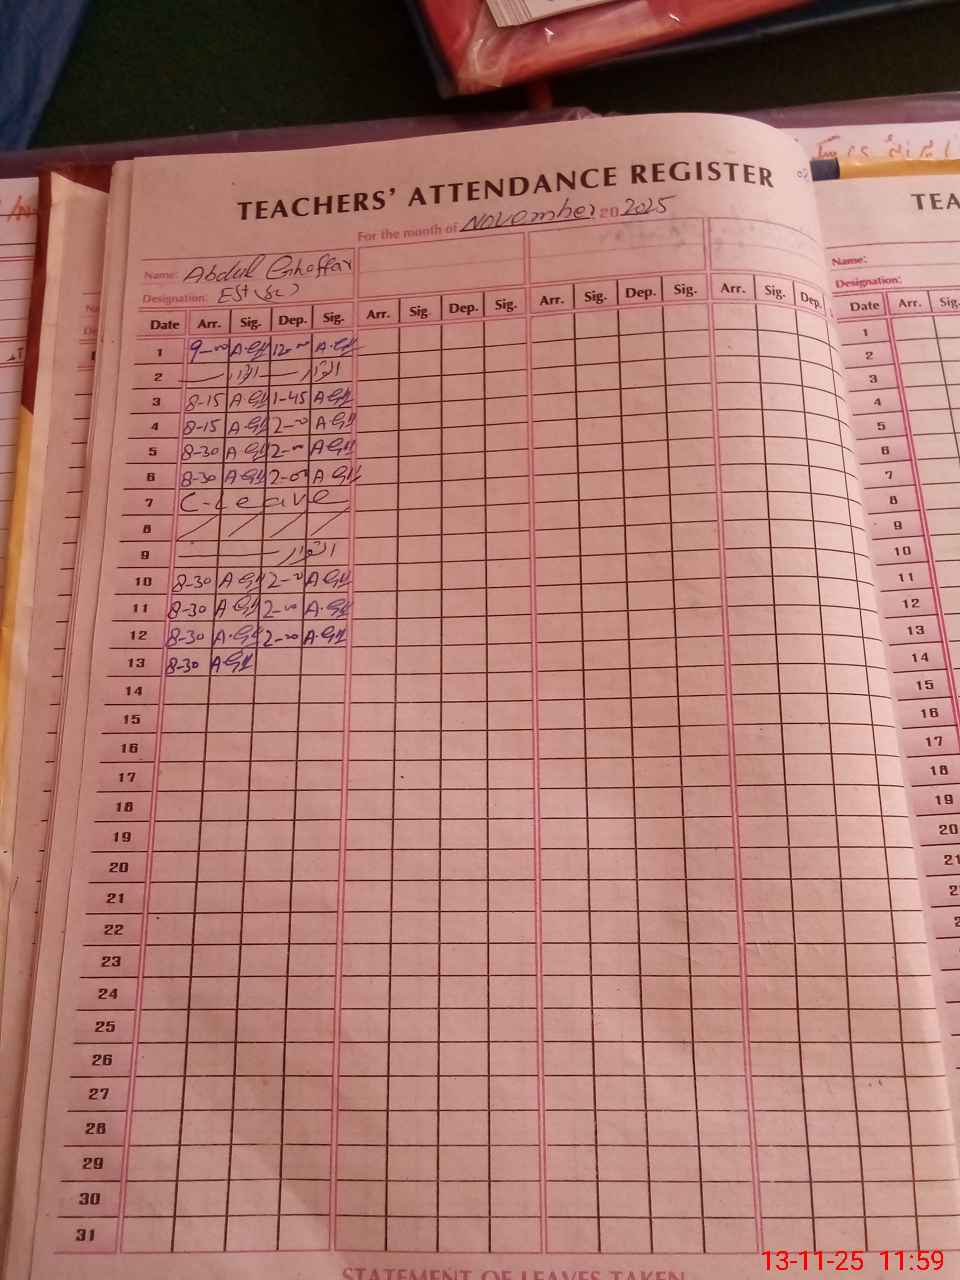 TEACHERS' ATTENDANCE REGISTER
For the month of November 20 2025
Name: Abdul Ghaffar
Designation: EST (Sc)
Date Arr. Sig. Dep. Sig. Arr. Sig. Dep. Sig. Arr. Sig. Dep. Sig. Arr. Sig. Dep.
1 9-00 A.Gff 12-00 A.Gff
2 اتوار اتوار
3 8-15 A Gff 1-45 A Gff
4 8-15 A Gff 2-00 A Gff
5 8-30 A Gff 2-00 A Gff
6 8-30 A Gff 2-00 A Gff
7 C-Leave
8
9 اتوار
10 8-30 A Gff 2-00 A Gff
11 8-30 A Gff 2-00 A.Gff
12 8-30 A.Gff 2-00 A.Gff
13 8-30 A.Gff
14
15
16
17
18
19
20
21
22
23
24
25
26
27
28
29
30
31
STATEMENT OF LEAVES TAKEN
TEA
Name:
Designation:
Date Arr. Sig.
1
2
3
4
5
6
7
8
9
10
11
12
13
14
15
16
17
18
19
20
21
13-11-25 11:59